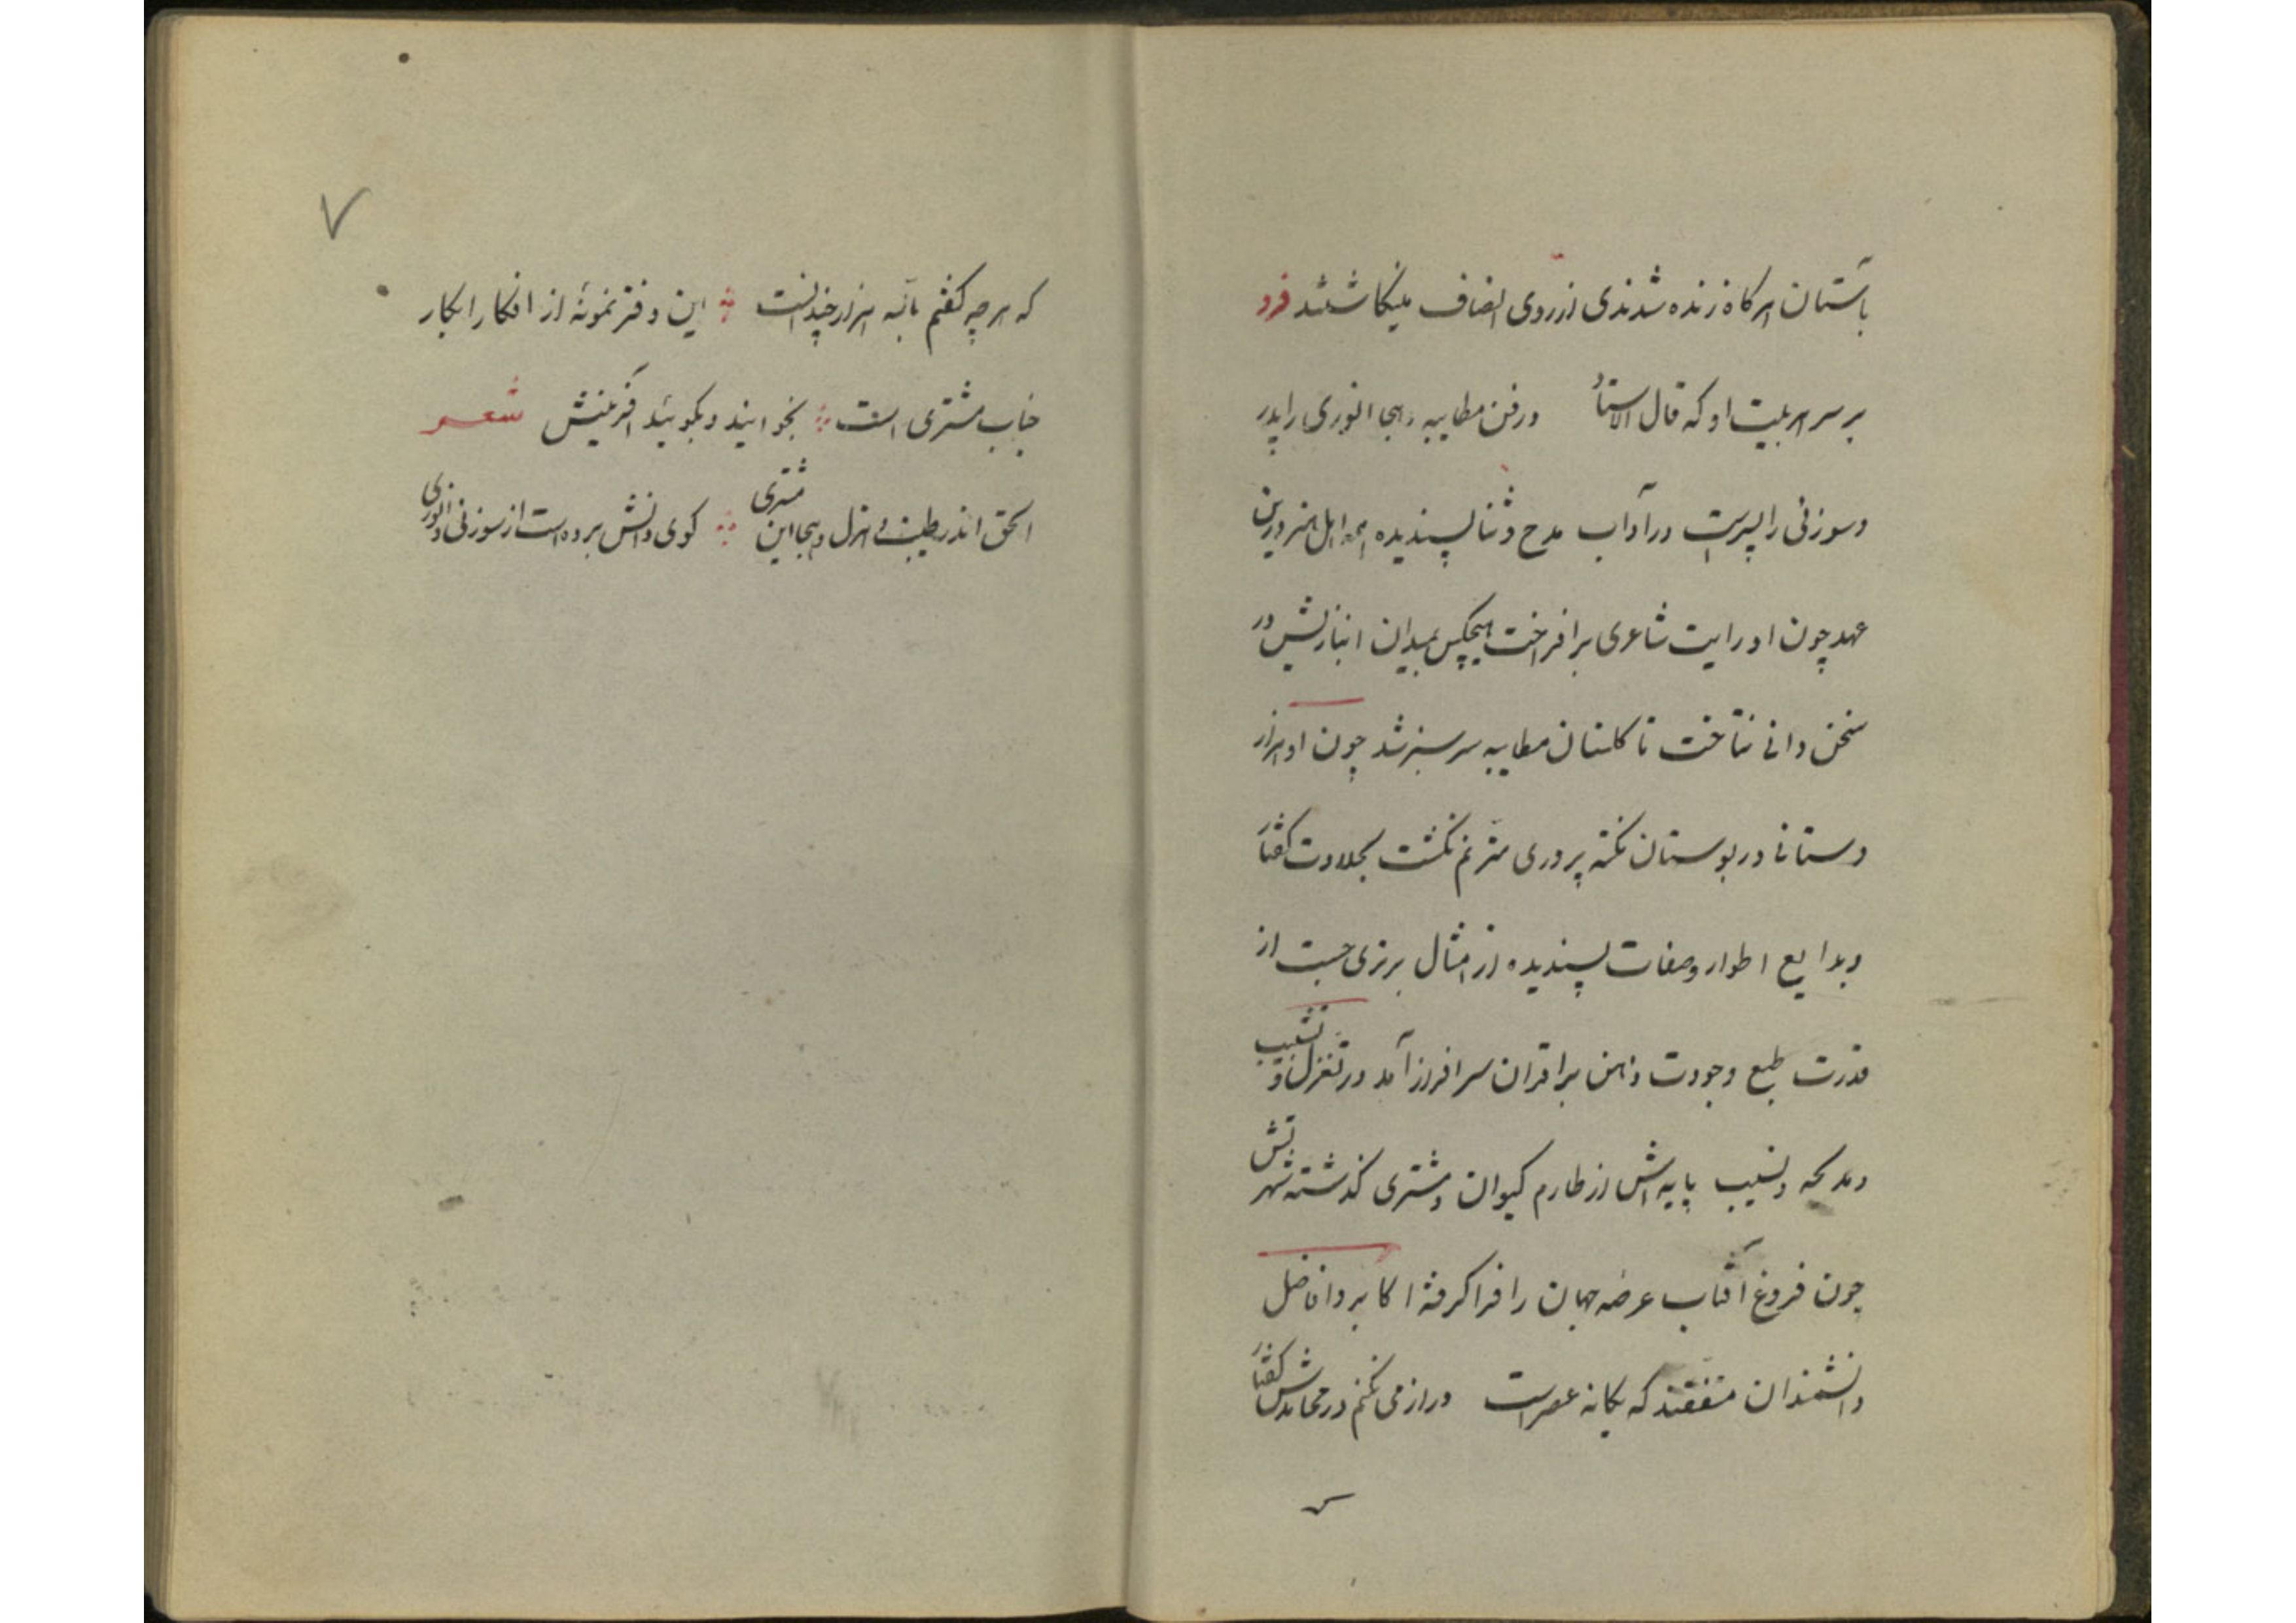 باستان هرکاه زنده شدندی از روی انصاف مینکاشتند فرد
بر سر هر بیت او که قال الاستاد درفن مطایبه وهجا انوری را پدر
وسوزنی را پسر است در آداب مدح وثنا پسندیده همه اهل هنر درین
عهد چون او رایت شاعری برافراخت هیچکس بمیدان انبازیش در
سخن دانی نتاخت تا کلستان مطایبه سرسبز شد چون او هزار
دستانی در بوستان نکته پروری مترنم نکشت بحلاوت کفتار
وبدایع اطوار وصفات پسندیده از امثال برتری جست از
قدرت طبع وجودت ذهن بر اقران سرافراز آمد در تغزل و تشبیب
ومدیحه ونسیب پایه اش از طارم کیوان ومشتری کذشته شهرتش
چون فروغ آفتاب عرضه جهان را فرا کرفته اکابر وافاضل
دانشمندان متفقند که یکانه عصر است دراز می نکنم در محامدش کفتار
۷
که هرچه کفتم بالله هزار چندانست این دفتر نمونهٔ از افکار ابکار
جناب مشتری است بخوانید وبکوئید آفرینش شعر
الحق اندر طیبت و هزل وهجا این مشتری کوی دانش برده است از سوزنی و انوری